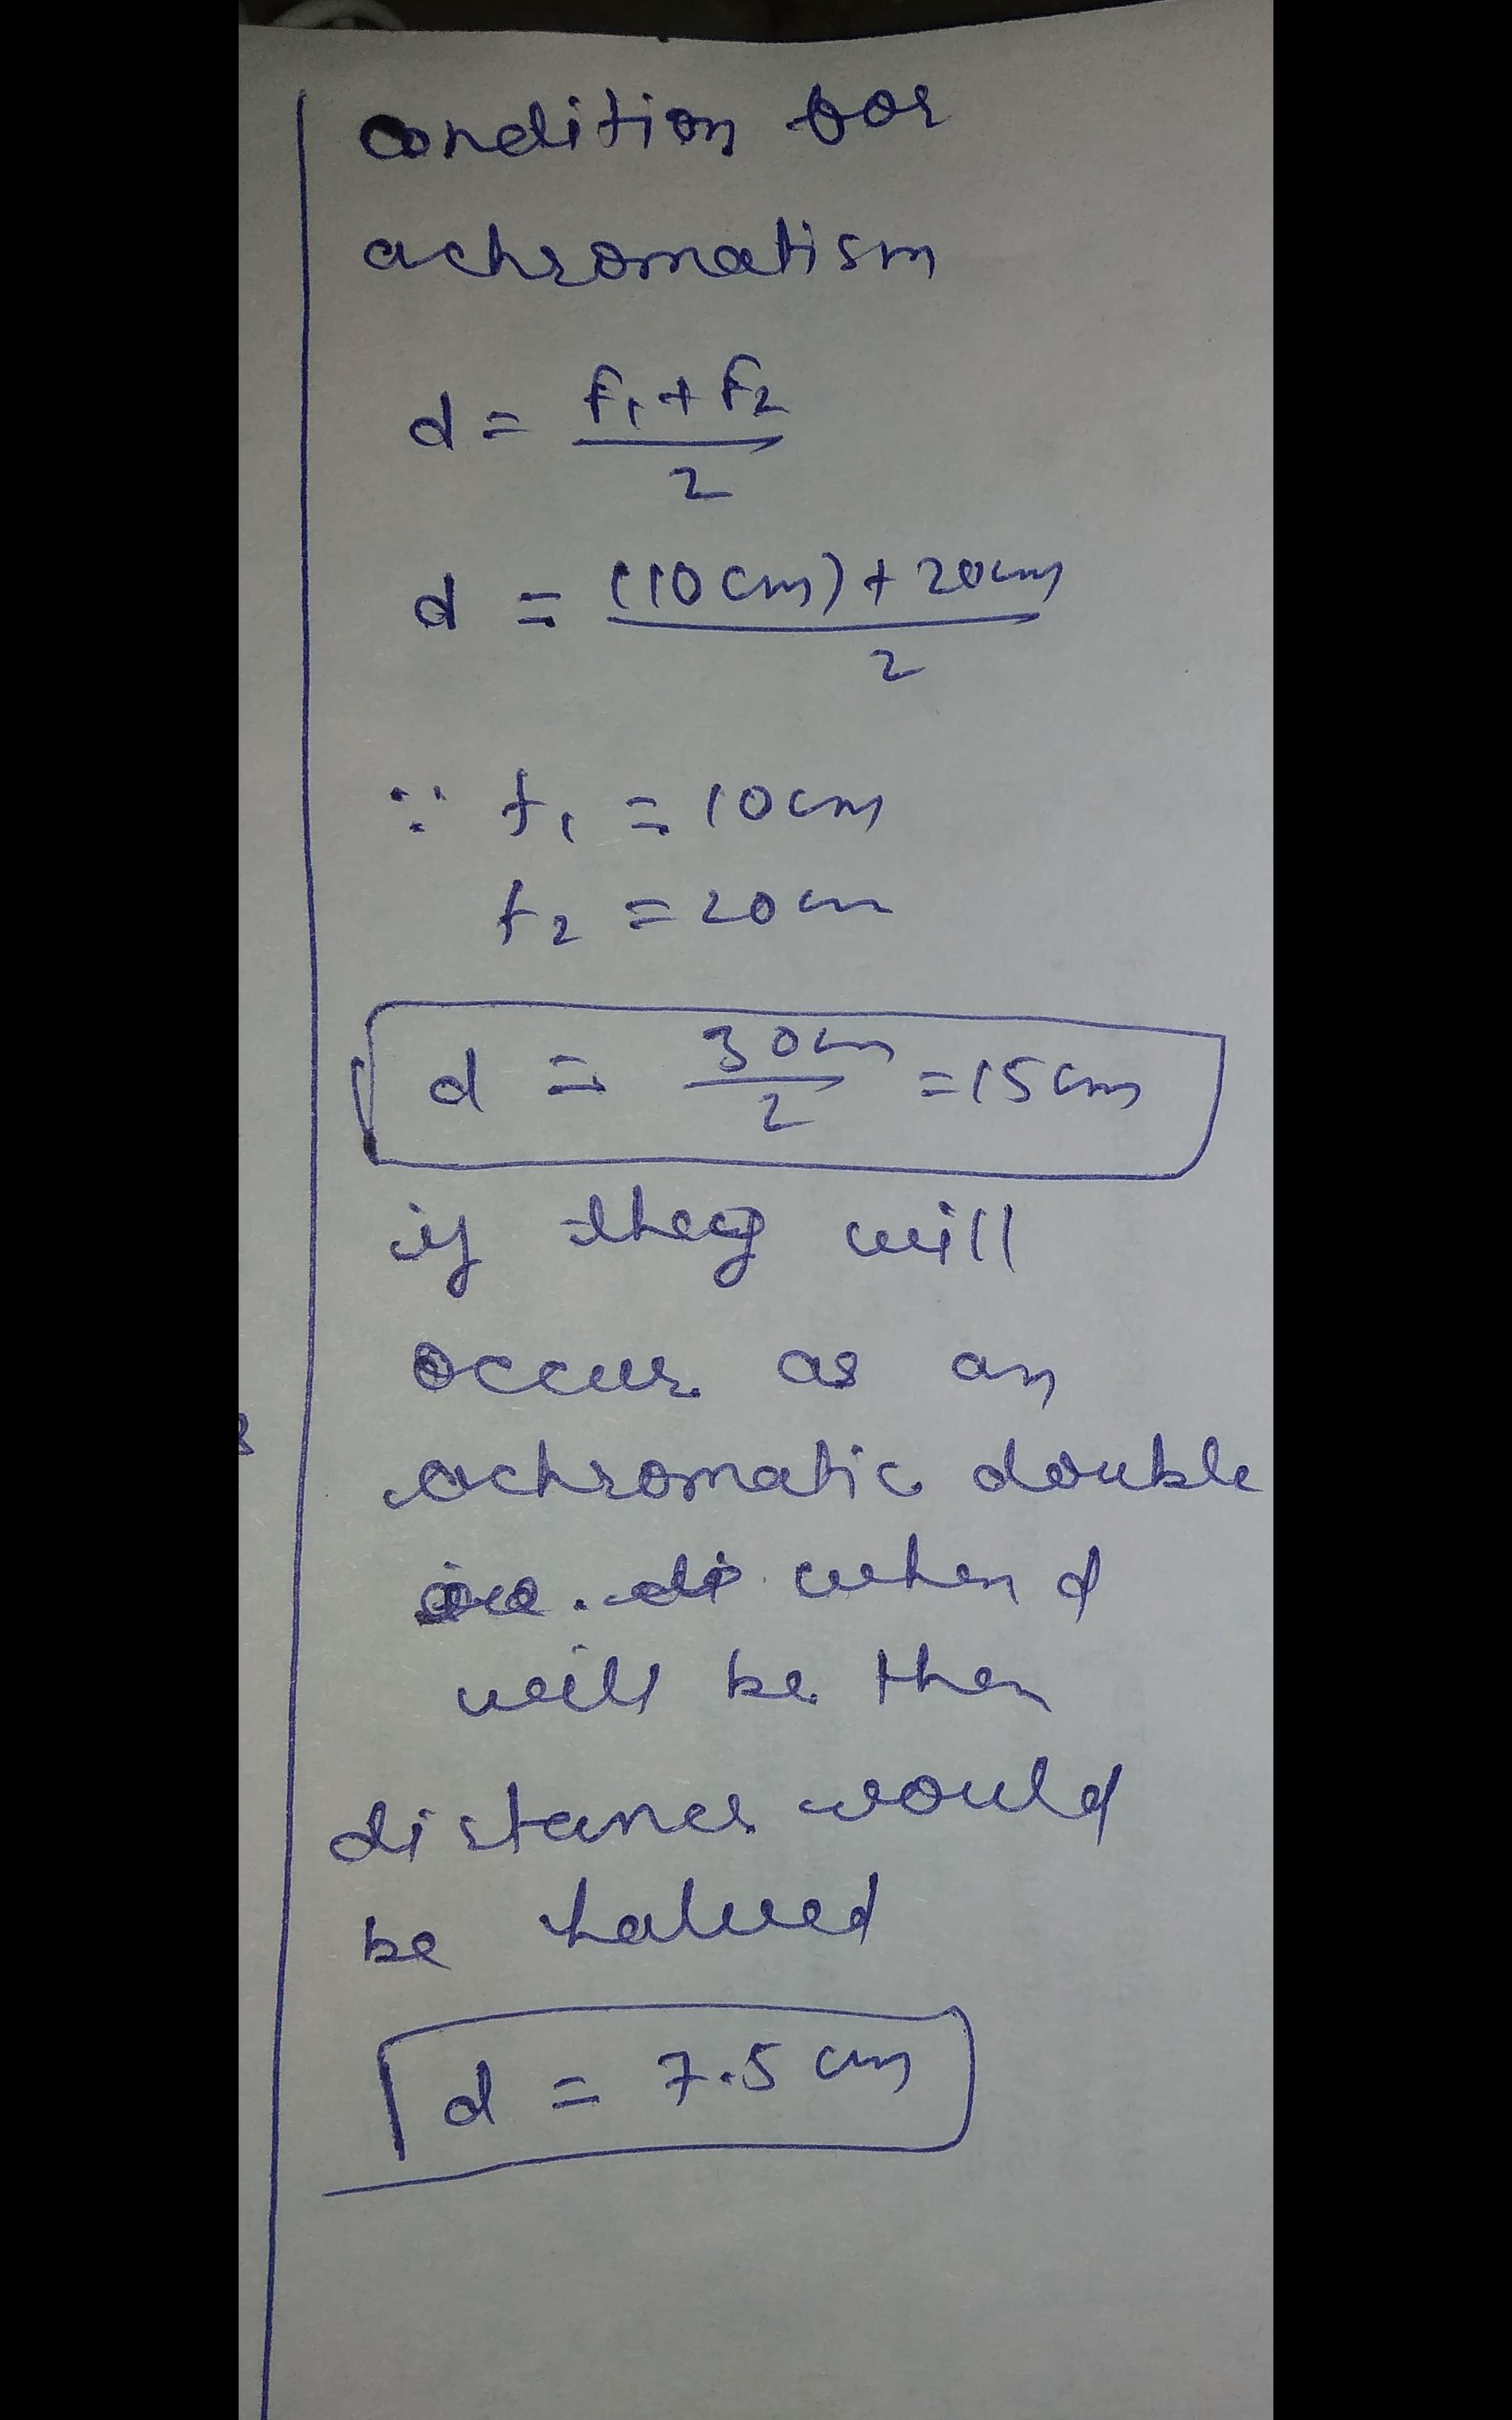 condition for
achromatism
d = f1 + f2
2
d = (10 cm) + 20cm
2
∵ f1 = 10cm
f2 = 20cm
d = 30cm/2 = 15cm
if they will
occur as an
achromatic double
when d
will be then
distance would
be halved
d = 7.5 cm